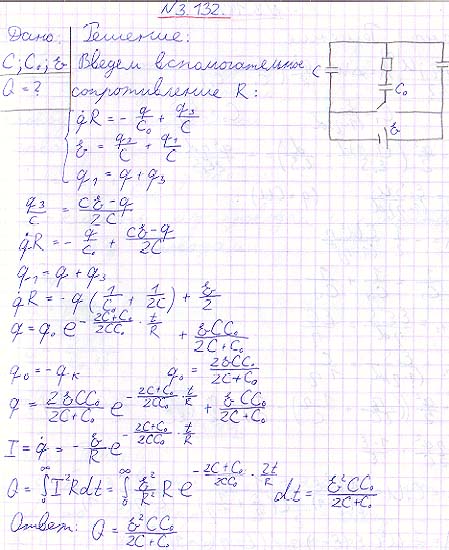 N3.132.
Дано: Решение:
C; C₀; ℰ Введем вспомогательное
Q = ? сопротивление R:
q̇R = -q/C₀ + q₃/C
ℰ = q₃/C + q₁/C
q₁ = q + q₃
q₃/C = (Cℰ-q)/2C
q̇R = -q/C₀ + (Cℰ-q)/2C
q₁ = q + q₃
q̇R = -q(1/C₀ + 1/2C) + ℰ/2
q = q₀ e^(-(2C+C₀)/2CC₀ · t/R) + ℰCC₀/(2C+C₀)
q₀ = -qₖ q₀ = 2ℰCC₀/(2C+C₀)
q = 2ℰCC₀/(2C+C₀) e^(-(2C+C₀)/2CC₀ · t/R) + ℰCC₀/(2C+C₀)
I = q̇ = -ℰ/R · e^(-(2C+C₀)/2CC₀ · t/R)
Q = ∫₀^∞ I²Rdt = ∫₀^∞ ℰ²/R² R e^(-(2C+C₀)/2CC₀ · 2t/R) dt = ℰ²CC₀/(2C+C₀)
Ответ: Q = ℰ²CC₀/(2C+C₀)
C
C₀
ℰ